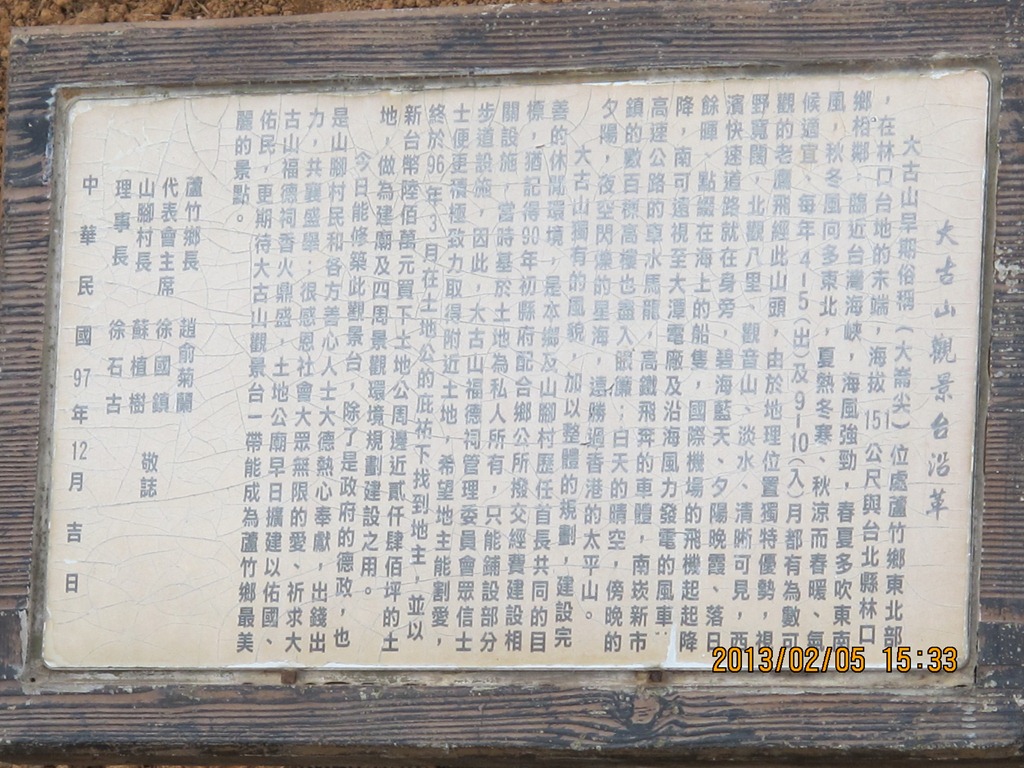 大古山觀景台沿革
大古山早期俗稱（大崙尖）位處蘆竹鄉東北部
，在林口台地的末端，海拔151公尺與台北縣林口
鄉相鄰，臨近台灣海峽，海風強勁，春夏多吹東南
風，秋冬風向多東北，夏熱冬寒、秋涼而春暖、氣
候適宜，每年4-5(出)及9-10(入)月都有為數可
觀的老鷹飛經此山頭，由於地理位置獨特優勢，視
野寬闊，北觀八里、觀音山、淡水、清晰可見，西
濱快速道路就在身旁，碧海藍天、夕陽晚霞、落日
餘暉，點綴在海上的船隻，國際機場的飛機起起降
降，南可遠視至大潭電廠及沿海風力發電的風車‥
高速公路的車水馬龍，高鐵飛奔的車體，南崁新市
鎮的數百棟高樓也盡入眼簾；白天的晴空，傍晚的
夕陽，夜空閃爍的星海，遠勝過香港的太平山。
大古山獨有的風貌，加以整體的規劃，建設完
善的休閒環境，是本鄉及山腳村歷任首長共同的目
標，猶記得90年初縣府配合鄉公所撥交經費建設相
關設施，當時基於土地為私人所有，只能鋪設部分
步道設施，因此，大古山福德祠管理委員會眾信士
士便更積極致力取得附近土地，希望地主能割愛，
終於96年3月在土地公的庇祐下找到地主，並以
新台幣陸佰萬元買下土地公周邊近貳仟肆佰坪的土
地，做為建廟及四周景觀環境規劃建設之用。
今日能修築此觀景台，除了是政府的德政，也
是山腳村民和各方善心人士大德熱心奉獻，出錢出
力，共襄盛舉，很感恩社會大眾無限的愛、祈求大
古山福德祠香火鼎盛，土地公廟早日擴建以佑國、
佑民，更期待大古山觀景台一帶能成為蘆竹鄉最美
麗的景點。
蘆竹鄉長 趙俞菊蘭
代表會主席 徐國鎮
山腳村長 蘇植樹 敬誌
理事長 徐石古
中華民國97年12月吉日
2013/02/05 15:33